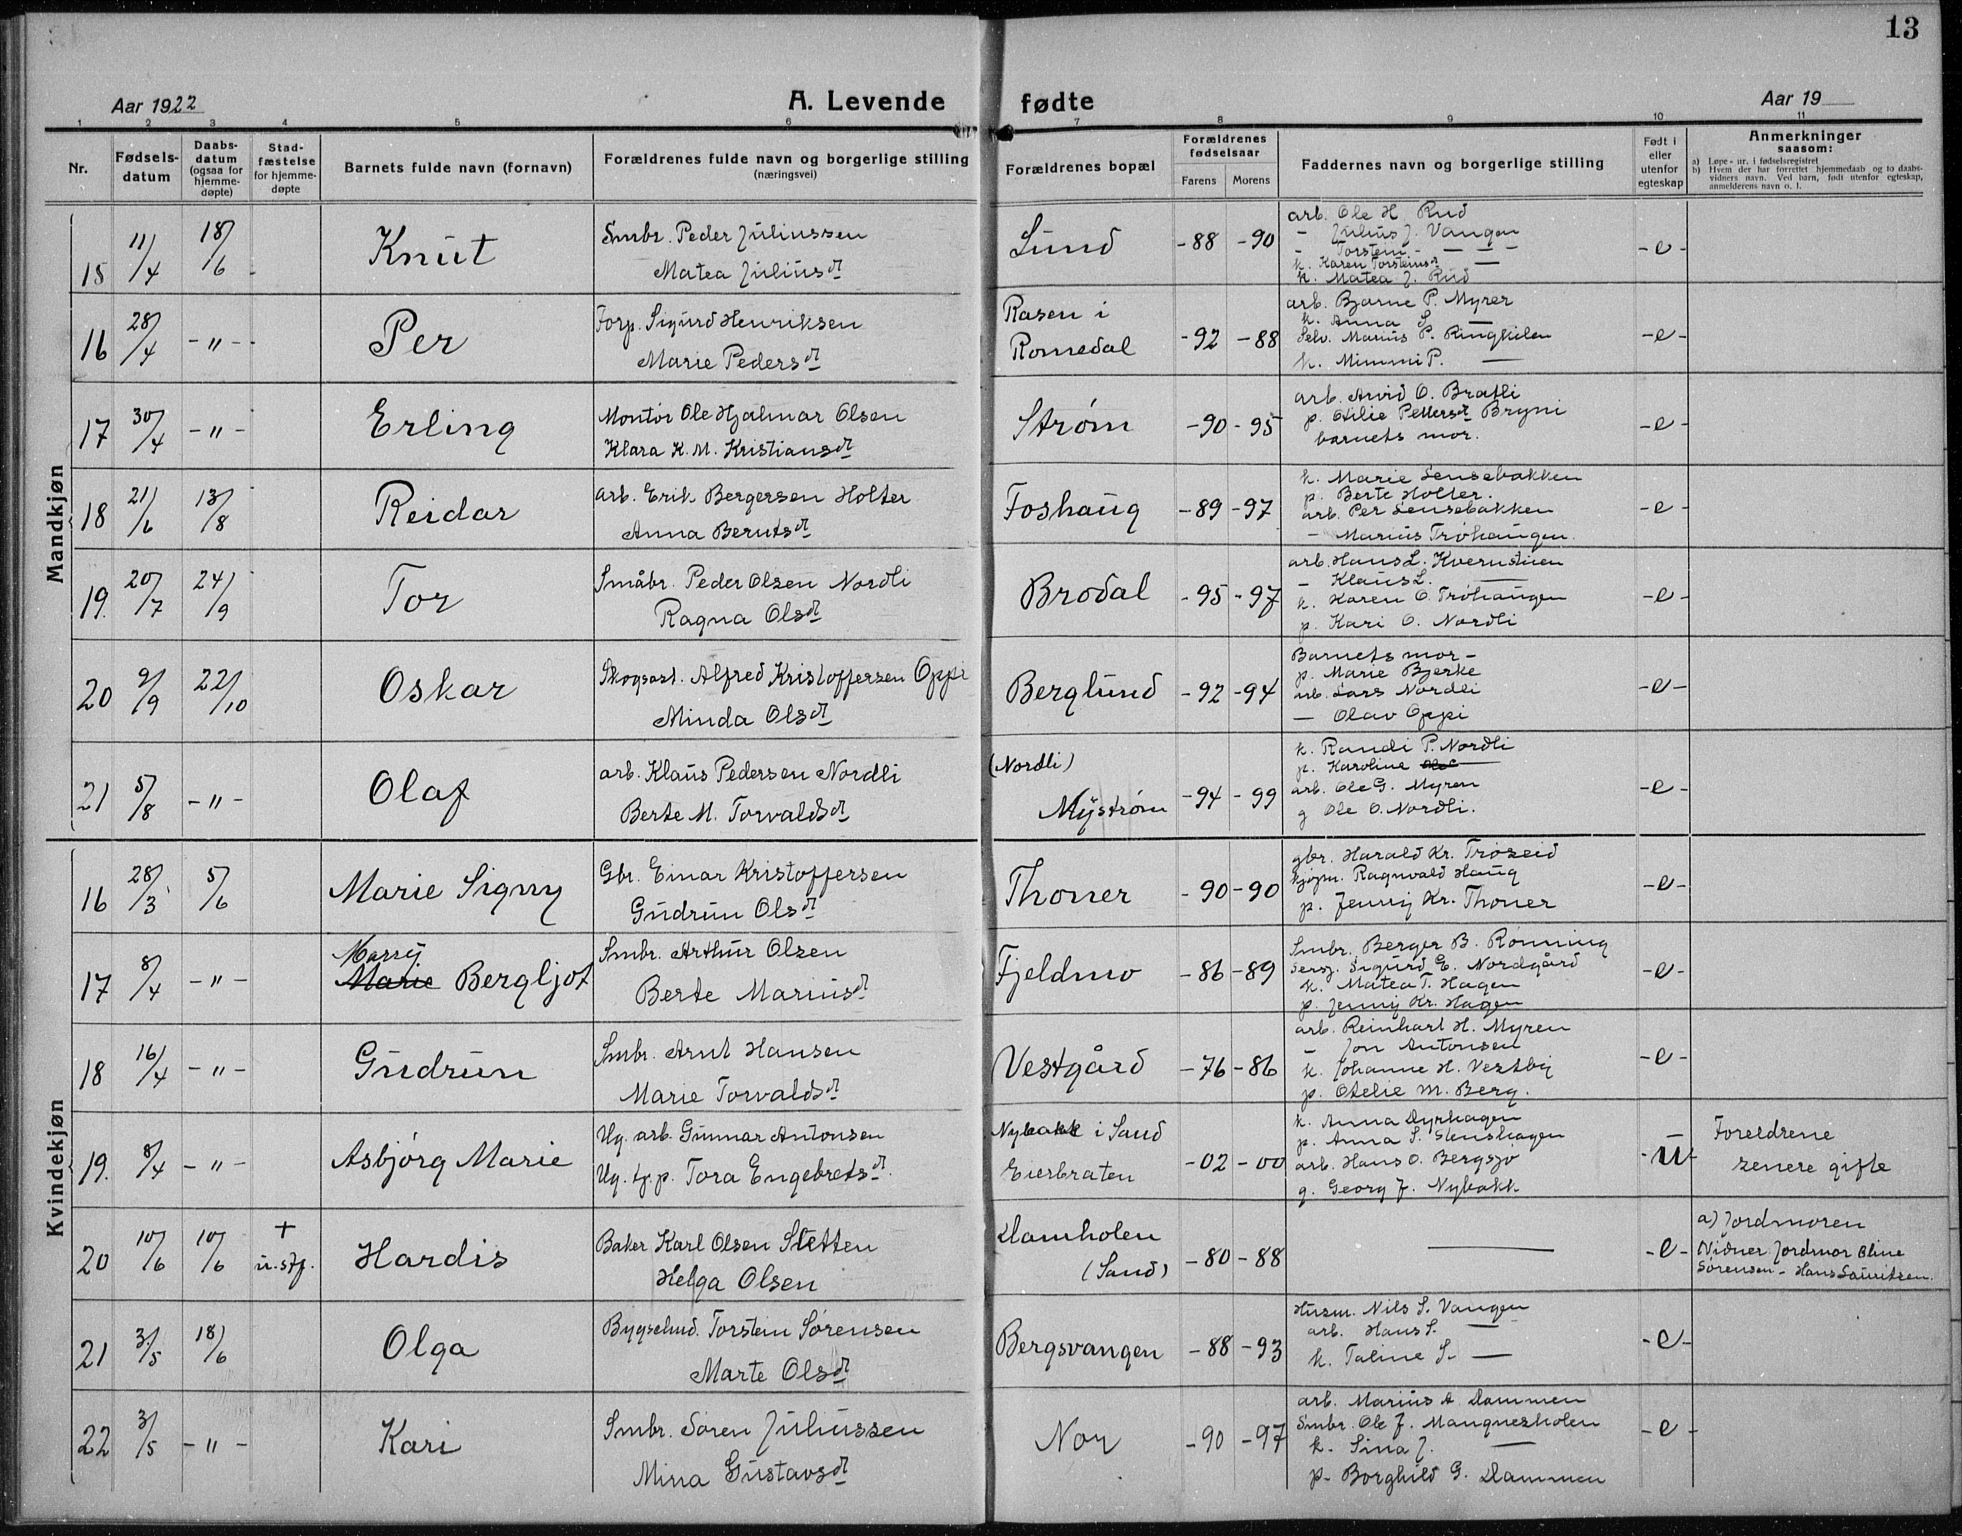 13
Aar 1922
A. Levende
fødte
Aar 19
1 2 3 4 5 6 7 8 9 10 11
Nr.
Fødsels-datum
Daabs-datum (ogsaa for hjemme-døpte)
Stad-fæstelse for hjemme-døpte
Barnets fulde navn (fornavn)
Forældrenes fulde navn og borgerlige stilling (næringsvei)
Forældrenes bopæl
Forældrenes fødselsaar
Farens Morens
Faddernes navn og borgerlige stilling
Født i eller utenfor egteskap
Anmerkninger saasom:
a) Løpe-nr. i fødselsregistret
b) Hvem der har forrettet hjemmedaab og to daabs-vidners navn. Ved barn, født utenfor egteskap, anmelderens navn o. l.
Mandkjøn
15 11/4 18/6 Knut
Smbr. Peder Juliussen
Matea Juliusdt
Lund -88 -90
arb. Ole H. Rud
— Julius J. Vangen
— Torstein — — —
k. Karen Torsteinsdt —
k. Matea J. Rud
-e-
16 28/4 - " - Per
Forp. Sigurd Henriksen
Marie Pedersdt
Rasen i
Romedal -92 -88
arb. Bjarne P. Myrer
k. Anna S. —
Selv. Marius P. Ringkilen
k. Mimmi P. —
-e-
17 30/4 - " - Erling
Montør Ole Hjalmar Olsen
Klara K. M. Kristiansdt
Strøm -90 -95
arb. Arvid O. Bratli
p. Otilie Pettersdt Bryni
barnets mor.
-e-
18 21/6 13/8 Reidar
arb. Erik Bergersen Holter
Anna Berntsdt
Foshaug -89 -97
k. Marie Lensebakken
p. Berte Holter.
arb. Per Lensebakken
— Marius Trøhaugen.
-e-
19. 20/7 24/9 Tor
Småbr. Peder Olsen Nordli
Ragna Olsdt
Brodal -95 -97
arb. Hans L. Kvernstuen
— Klaus L. —
k. Karen O. Trøhaugen
p. Kari O. Nordli
-e-
20 9/9 22/10 Oskar
Skogsast. Alfred Kristoffersen Oppi
Minda Olsdt
Berglund -92 -94
Barnets mor —
p. Marie Bjerke
arb. Lars Nordli
— Olav Oppi
-e-
21 5/8 - " - Olaf
arb. Klaus Pedersen Nordli
Berte M. Torvaldsdt
(Nordli)
Mystrøm -94 -99
k. Randi P. Nordli
p. Karoline —
arb. Ole G. Myren
g Ole O. Nordli.
-e-
Kvindekjøn
16 28/3 5/6 Marie Signy
Gbr. Einar Kristoffersen
Gudrun Olsdt
Thoner -90 -90
gbr. Harald Kr. Trøseid
kjøpm. Ragnvald Haug
p. Jenny Kr. Thoner
-e-
17 8/4 - " - Massy
Marie Bergljot
Smbr. Arthur Olsen
Berte Mariusdt
Fjeldmo -86 -89
Smbr. Berger B. Rønning
Sersj. Sigurd E. Nordgård
k. Matea T. Hagen
p. Jenny Kr. Hagen
-e-
18 16/4 - " - Gudrun
Smbr. Arnt Hansen
Marie Torvaldsdt
Vestgård -76 -86
arb. Reinhart H. Myren
— Jon Antonsen
k. Johanne H. Vestby
p. Otelie M. Berg.
-e-
19. 8/4 - " - Asbjørg Marie
Ug. arb. Gunnar Antonsen
Ug. tj. p. Tora Engebretsdt.
Nybakk i Sand
Eierbraten -02 -00
k. Anna Dyrhagen
p. Anna S. Stenshagen
arb. Hans O. Bergsjø
g. Georg J. Nybakk
-u-
Foreldrene
senere gifte
20 10/6 10/6 +
u. stf. Hardis
Baker Karl Olsen Sletten
Helga Olsen
Damholen
(Sand) -80 -88
—
-e-
a) Jordmoren
Vidner Jordmor Oline
Sørensen - Hans Lauritsen.
21 3/5 18/6 Olga
Bygselmd. Torstein Sørensen
Marte Olsdt
Bergsvangen -88 -93
Husm. Nils S. Vangen
arb. Hans S. —
k. Taline S. —
-e-
22 3/5 - " - Kari
Smbr. Søren Juliussen
Mina Gustavsdt
Nor -90 -97
arb. Marius A Dammen
Smbr. Ole J. Mangnesholen
k. Sina J. —
p. Borghild G. Dammen
-e-